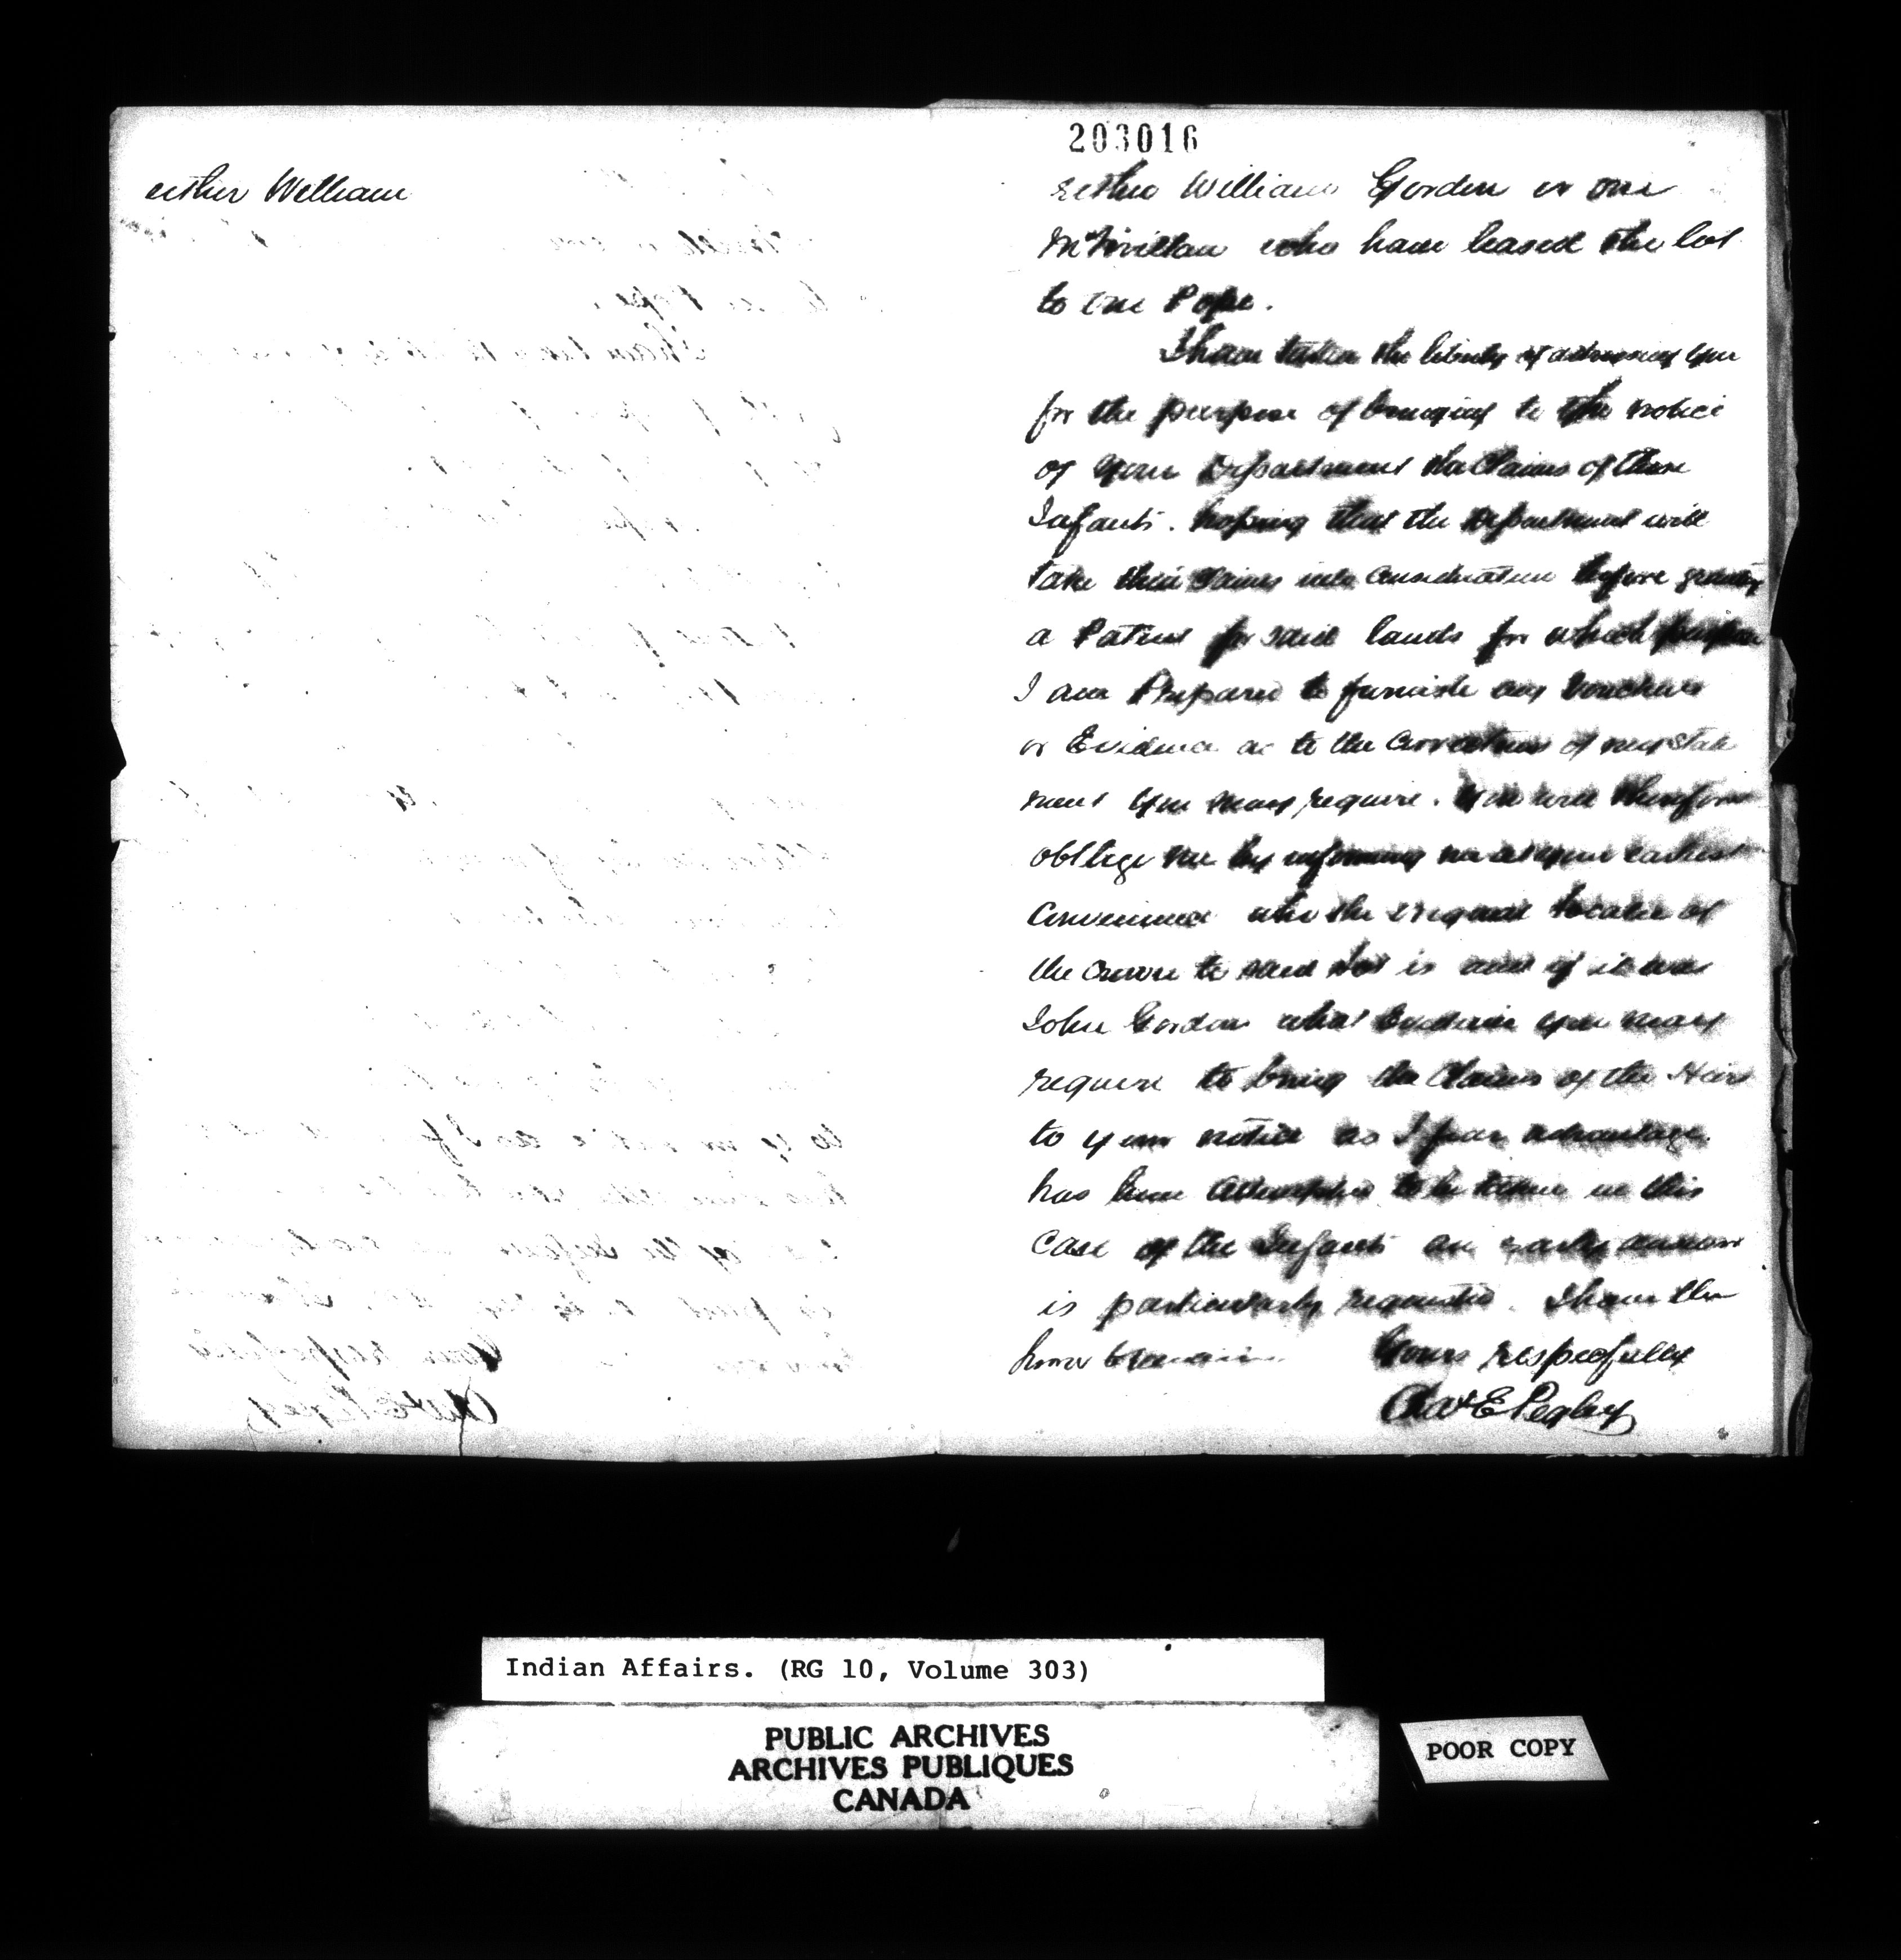 either William
203016
either William Gorden or one
who have leased the lot
to one Pope.
I have taken the liberty of addressing you
for the purpose of bringing to the notice
of your Department the Claims of these
Infants. hoping that the Department will
take their Claims into Consideration before granting
a Patent for said lands for which purpose
I am Prepared to furnish any Vouchers
or Evidence as to the Correctness of my state
ment you may require. You will therefore
obllege me by informing me at your earliest
Convenience who the original Locatee of
the Crown to said Lot is and if it was
John Gordon what Evidence you may
require to bring the Claims of the Heirs
to your notice as I fear advantage
has been attempted to be taken in this
Case of the Infants an early answer
is particularly requested. I have the
honor to remain Yours respecfully
Chas E Pegley
Indian Affairs. (RG 10, Volume 303)
PUBLIC ARCHIVES
ARCHIVES PUBLIQUES
CANADA
POOR COPY